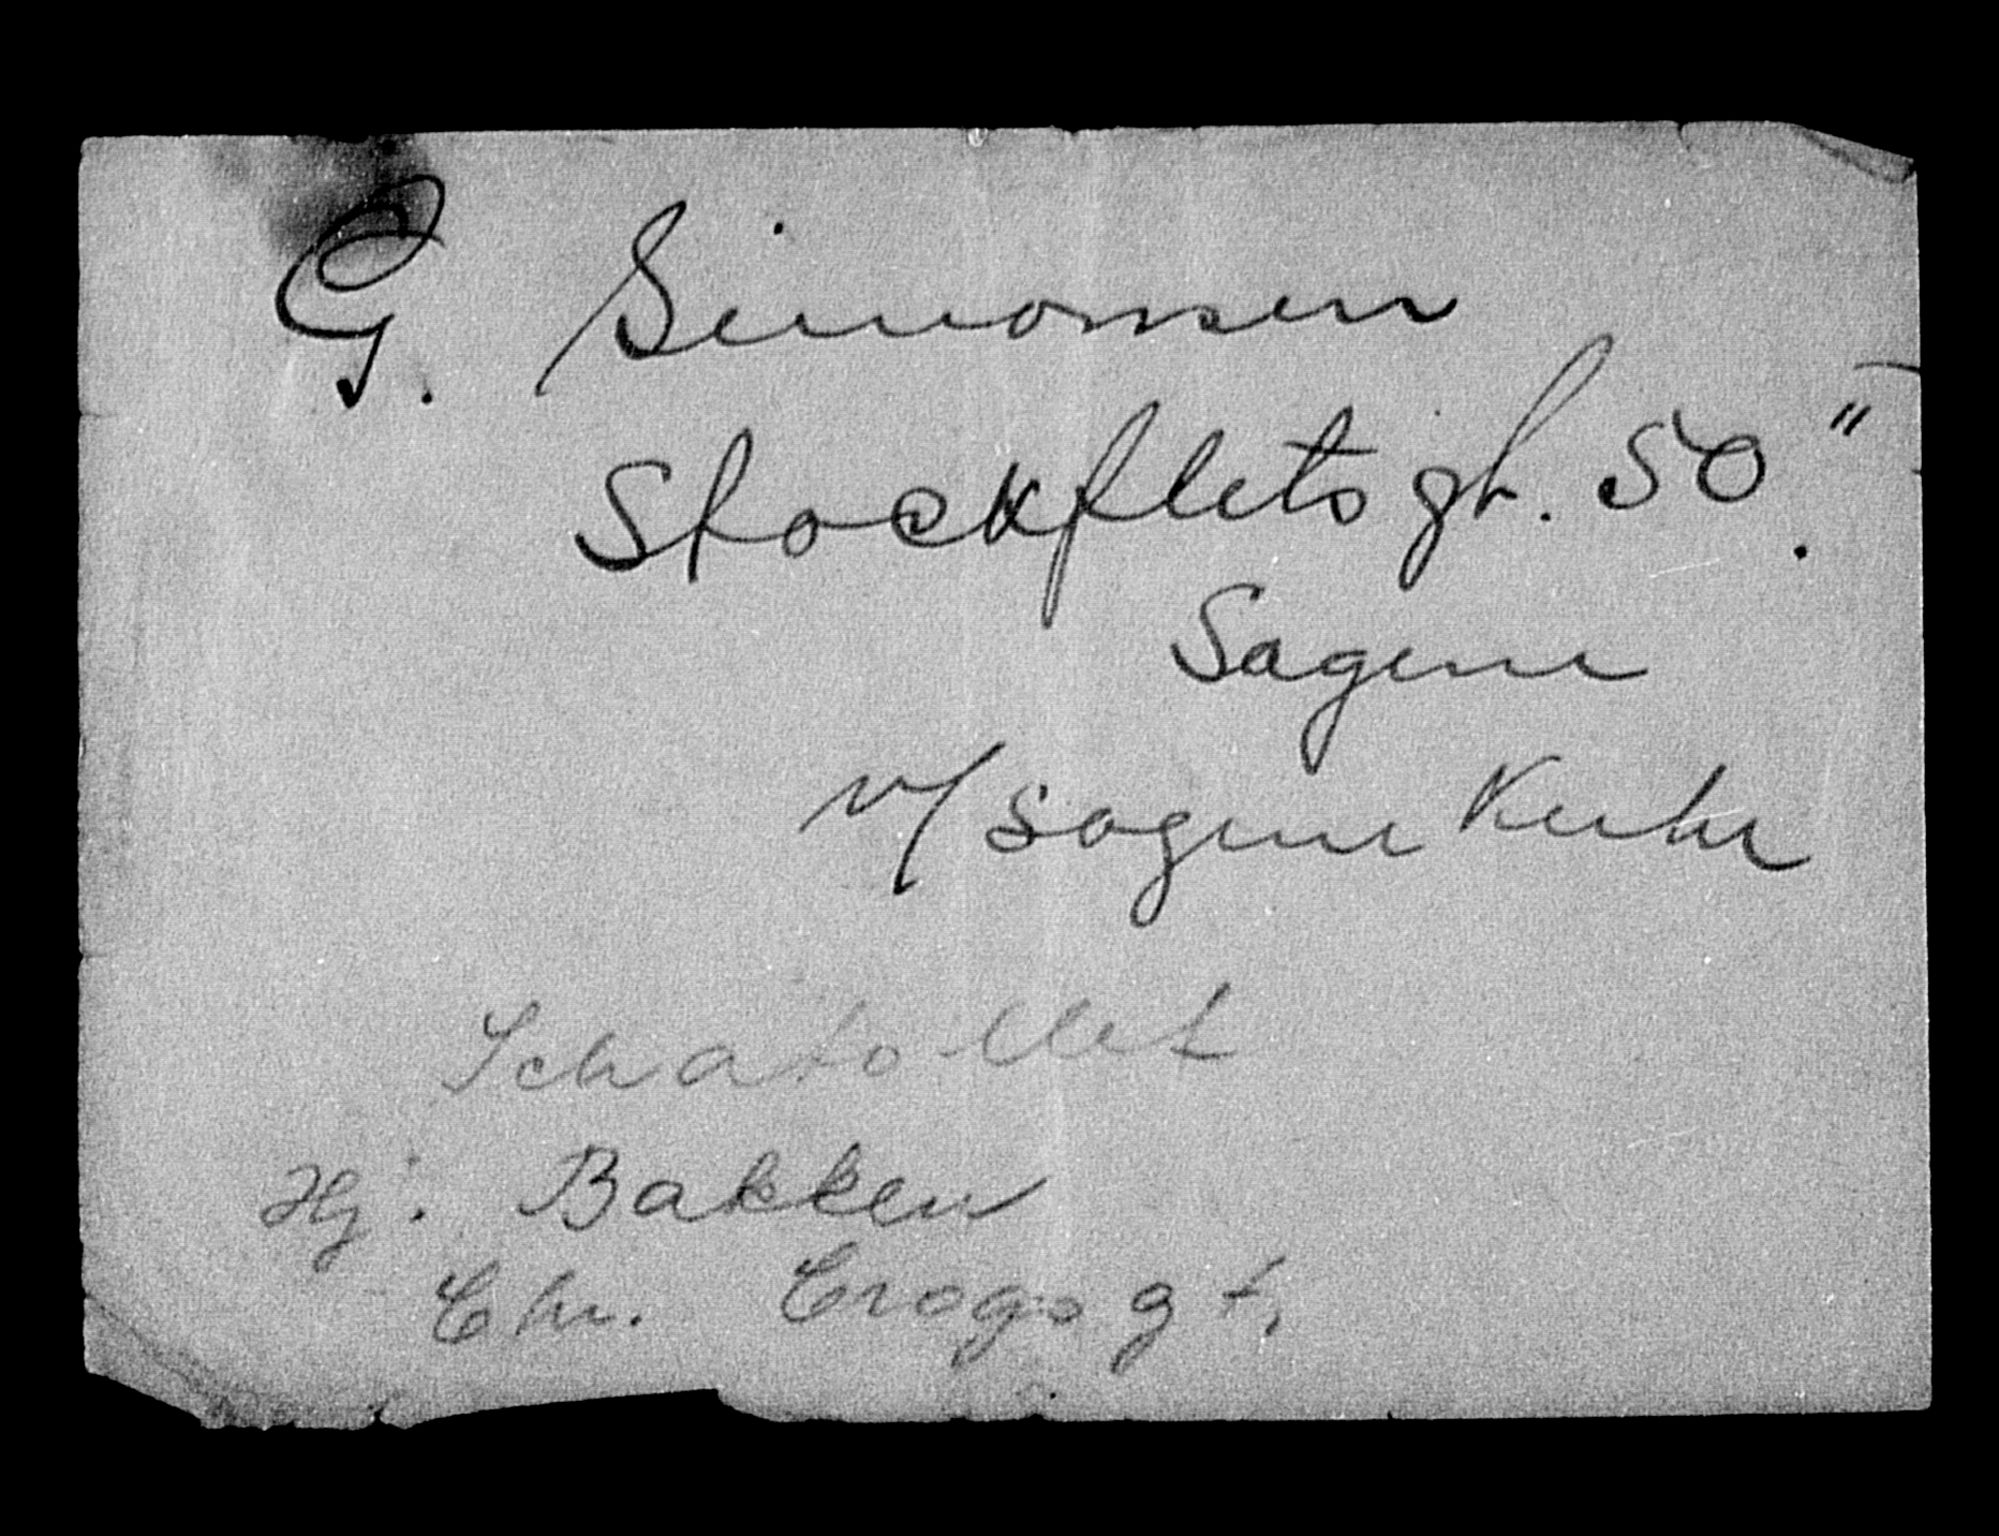 G. Simonsen
Stockfletsgt. 50."
Sagene
v/ Sagene Kirke
Schatollet
Hj. Bakken
Chr. Crogs gt.